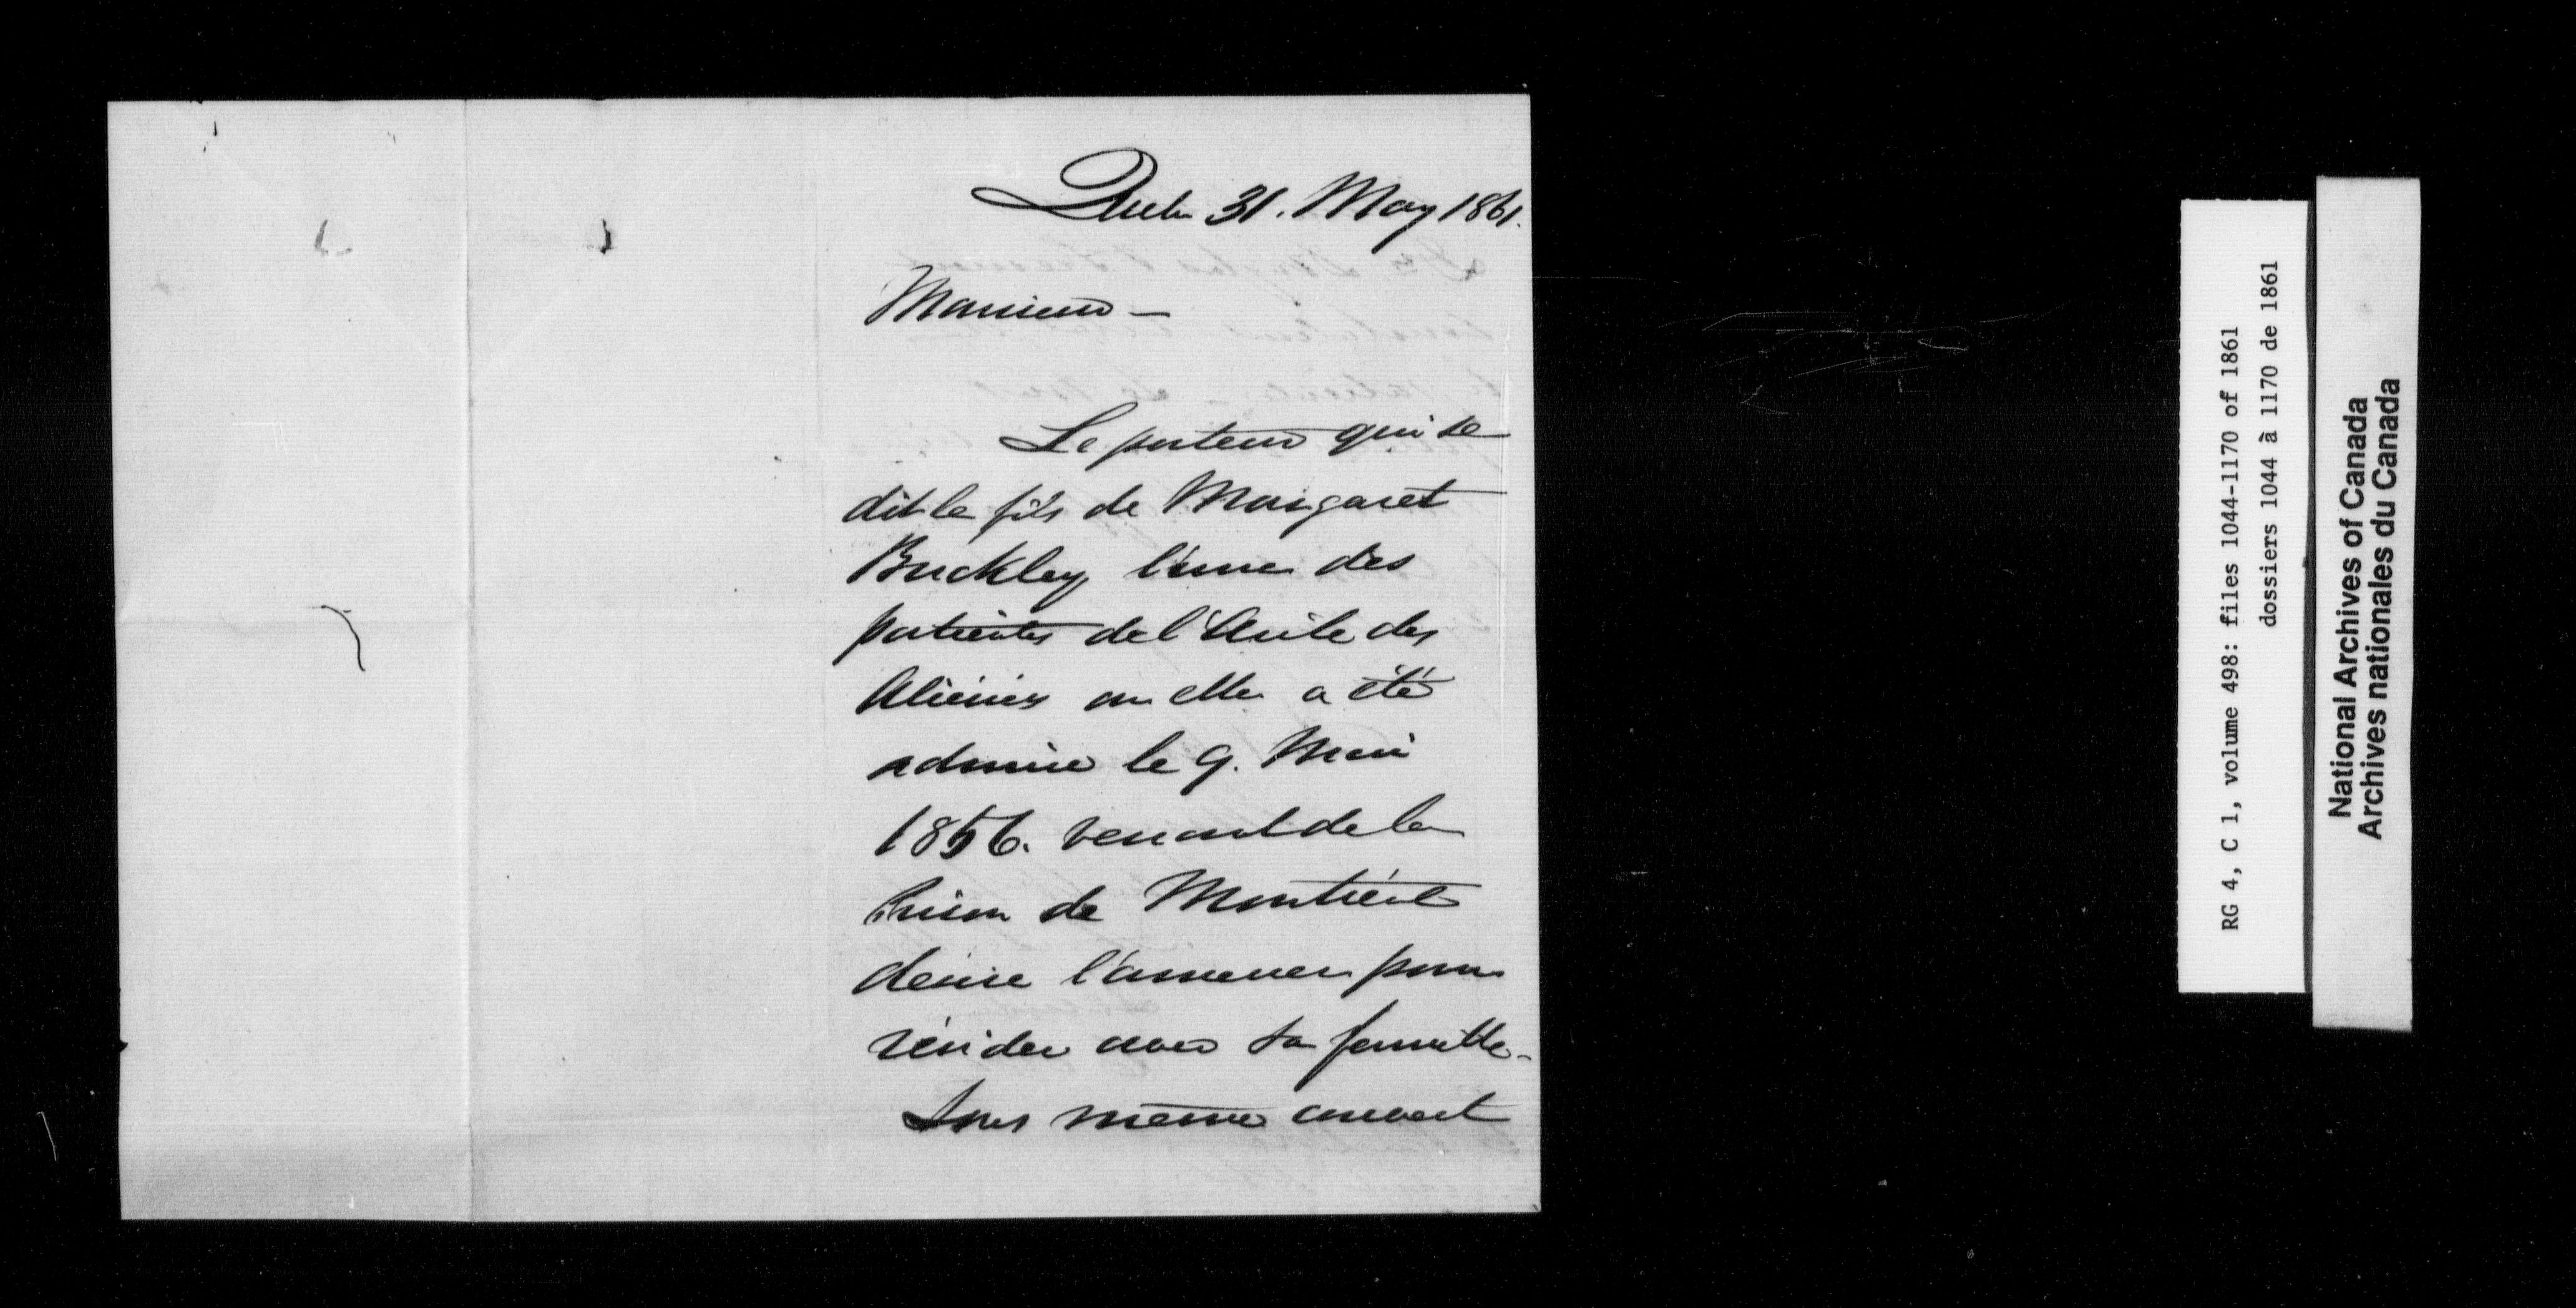 Quebec 31. May 1861.
Monsieur —
Le porteur qui se
dit le fils de Margaret
Buckley, l'une des
patientes de l'Asile des
Aliénés ou elle a été
admise le 9. Mai
1856. venant de la
Prison de Montréal
désire l'amener pour
résider avec sa famille -
Sous même couvert
RG 4, C 1, volume 498: files 1044-1170 of 1861
dossiers 1044 à 1170 de 1861
National Archives of Canada
Archives nationales du Canada